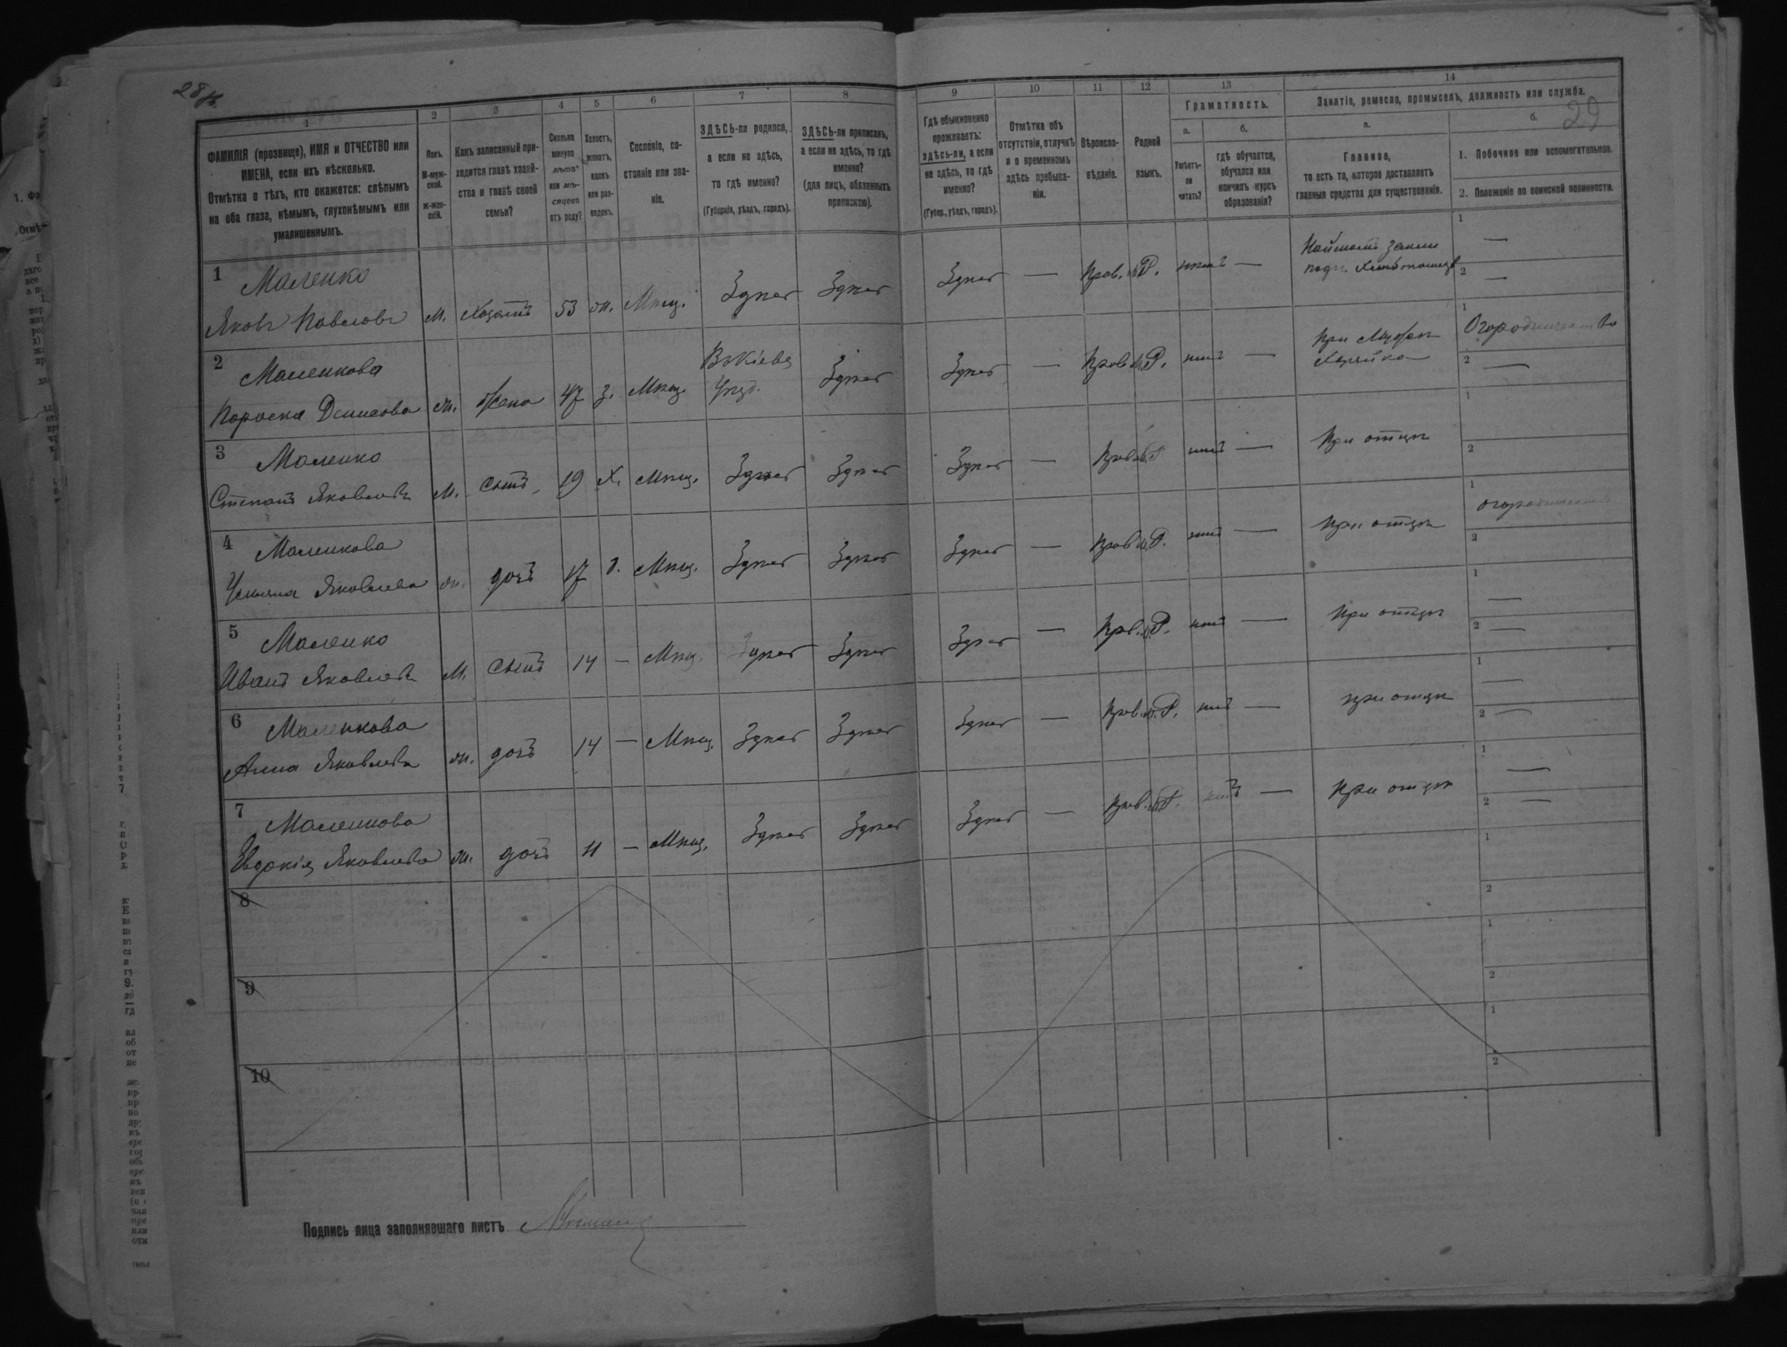 28
29
1 2 3 4 5 6 7 8 9 10 11 12 13 14
ФАМИЛІЯ (прозвище), ИМЯ и ОТЧЕСТВО или
ИМЕНА, если ихъ нѣсколько.
Отмѣтка о тѣхъ, кто окажется: слѣпымъ
на оба глаза, нѣмымъ, глухонѣмымъ или
умалишеннымъ.
Полъ.
М-муж-
ской.
Ж-жен-
скій.
Какъ записанный при-
ходится главѣ хозяй-
ства и главѣ своей
семьи?
Сколько
минуло
лѣтъ
или мѣ-
сяцевъ
отъ роду?
Холостъ,
женатъ,
вдовъ
или раз-
веденъ.
Сословіе, со-
стояніе или зва-
ніе.
ЗДѢСЬ-ли родился,
а если не здѣсь,
то гдѣ именно?
(Губернія, уѣздъ, городъ).
ЗДѢСЬ-ли приписанъ,
а если не здѣсь, то гдѣ
именно?
(для лицъ, обязанныхъ
припискою).
Гдѣ обыкновенно
проживаетъ:
здѣсь-ли, а если
не здѣсь, то гдѣ
именно?
(Губер., уѣздъ, городъ).
Отмѣтка объ
отсутствіи, отлучкѣ
и о временномъ
здѣсь пребыва-
ніи.
Вѣроиспо-
вѣданіе.
Родной
языкъ.
Грамотность.
а.
Умѣетъ-
ли
читать?
б.
гдѣ обучается,
обучался или
кончилъ курсъ
образованія?
Занятіе, ремесло, промыселъ, должность или служба.
а.
Главное,
то есть то, которое доставляетъ
главныя средства для существованія.
б.
1. Побочное или вспомогательное.
2. Положеніе по воинской повинности.
1 Маленко
Яковъ Павловъ м. Хозяинъ 53 ж. Мѣщ. Здѣсь Здѣсь Здѣсь — Прав. М.Р. нѣтъ —
2 Маленкова
Параска Денисова ж. жена 47 з. Мѣщ. Въ Кіевѣ Уѣзд. Здѣсь Здѣсь — Прав. М.Р. нѣтъ — При мужѣ Хозяйка Огородничество
3 Маленко
Степанъ Яковлевъ м. сынъ 19 Х. Мѣщ. Здѣсь Здѣсь Здѣсь — Прав. М.Р. нѣтъ — При отцѣ
4 Маленкова
Ульяна Яковлева ж. дочь 17 д. Мѣщ. Здѣсь Здѣсь Здѣсь — Прав. М.Р. нѣтъ — При отцѣ
5 Маленко
Иванъ Яковлевъ м. сынъ 14 — Мѣщ. Здѣсь Здѣсь Здѣсь — Прав. М.Р. нѣтъ — При отцѣ
6 Маленкова
Анна Яковлева ж. дочь 14 — Мѣщ. Здѣсь Здѣсь Здѣсь — Прав. М.Р. нѣтъ — При отцѣ
7 Маленкова
Евдокія Яковлева ж. дочь 11 — Мѣщ. Здѣсь Здѣсь Здѣсь — Прав. М.Р. нѣтъ — При отцѣ
8
9
10
Подпись лица заполнявшаго листъ